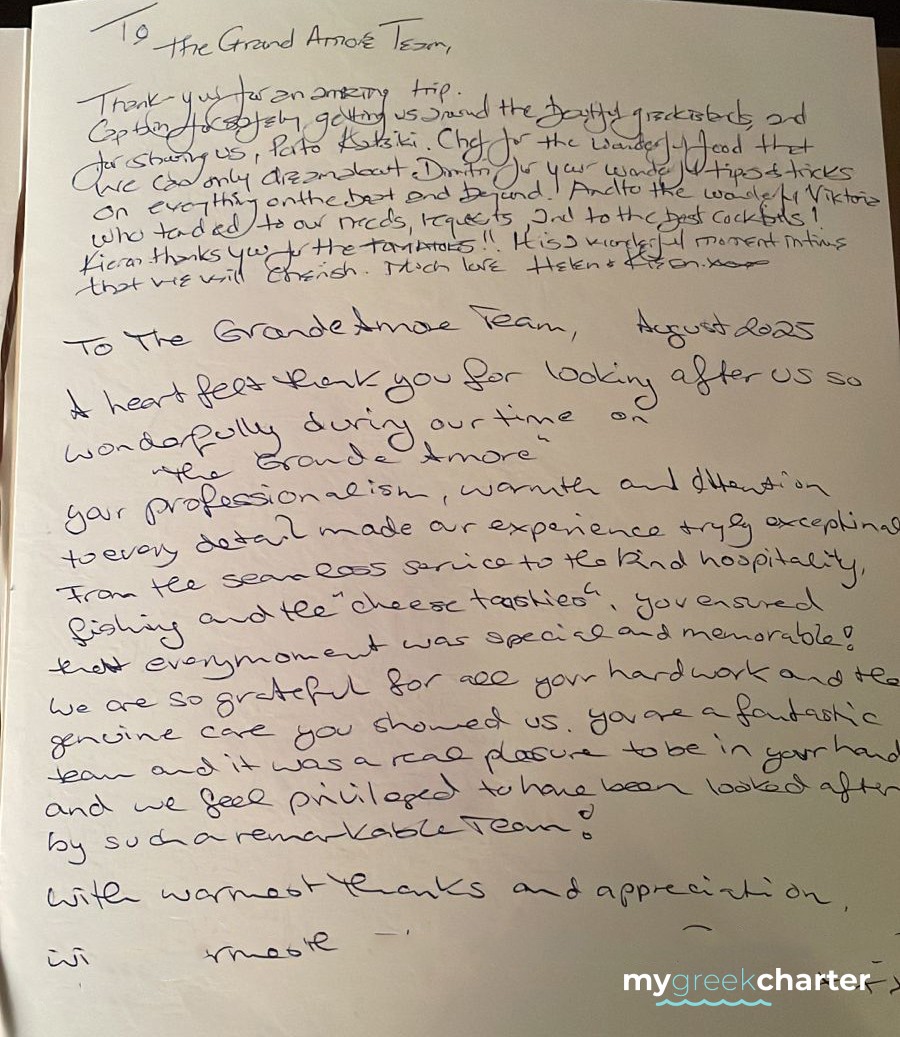 To the Grand Amore Team,
Thank-you for an amazing trip.
Captain for safely getting us around the beautiful greek islands, and
for sharing us, Porto Katsiki. Chef for the wonderful food that
we can only dream about. Dimitri for your wonderful tips & tricks
on everything on the boat and beyond! And to the wonderful Viktoria
who tended to our needs, requests, and to the best cocktails!
Kieran thanks you for the tomatoes!! It is a wonderful moment in time
that we will cherish. Much love Helen & Kieran. xoxo
To The Grande Amore Team, August 2025
A heart felt thank you for looking after us so
wonderfully during our time on
"The Grande Amore"
your professionalism, warmth and attention
to every detail made our experience tryly exceptional
From the seamless service to the kind hospitality,
fishing and the "cheese toasties", you ensured
that every moment was special and memorable!
We are so grateful for all your hard work and the
genuine care you showed us. you are a fantastic
team and it was a real pleasure to be in your hand
and we feel privileged to have been looked after
by such a remarkable Team!
With warmest thanks and appreciation,
mygreekcharter